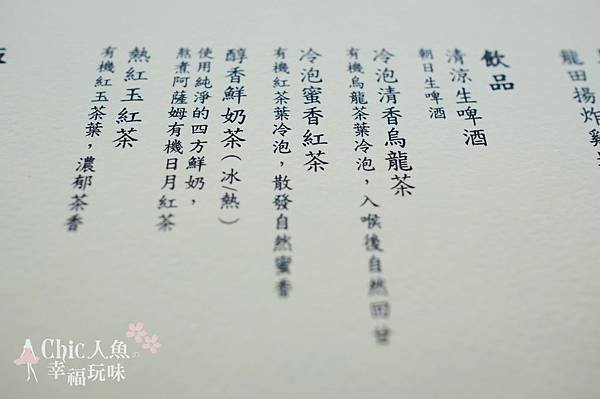 龍田揚炸雞
飲品
清涼生啤酒
朝日生啤酒
冷泡清香烏龍茶
有機烏龍茶葉冷泡，入喉後自然回甘
冷泡蜜香紅茶
有機紅茶葉冷泡，散發自然蜜香
醇香鮮奶茶(冰/熱)
使用純淨的四方鮮奶，
熬煮阿薩姆有機日月紅茶
熱紅玉紅茶
有機紅玉茶葉，濃郁茶香
Chic人魚の
幸福玩味